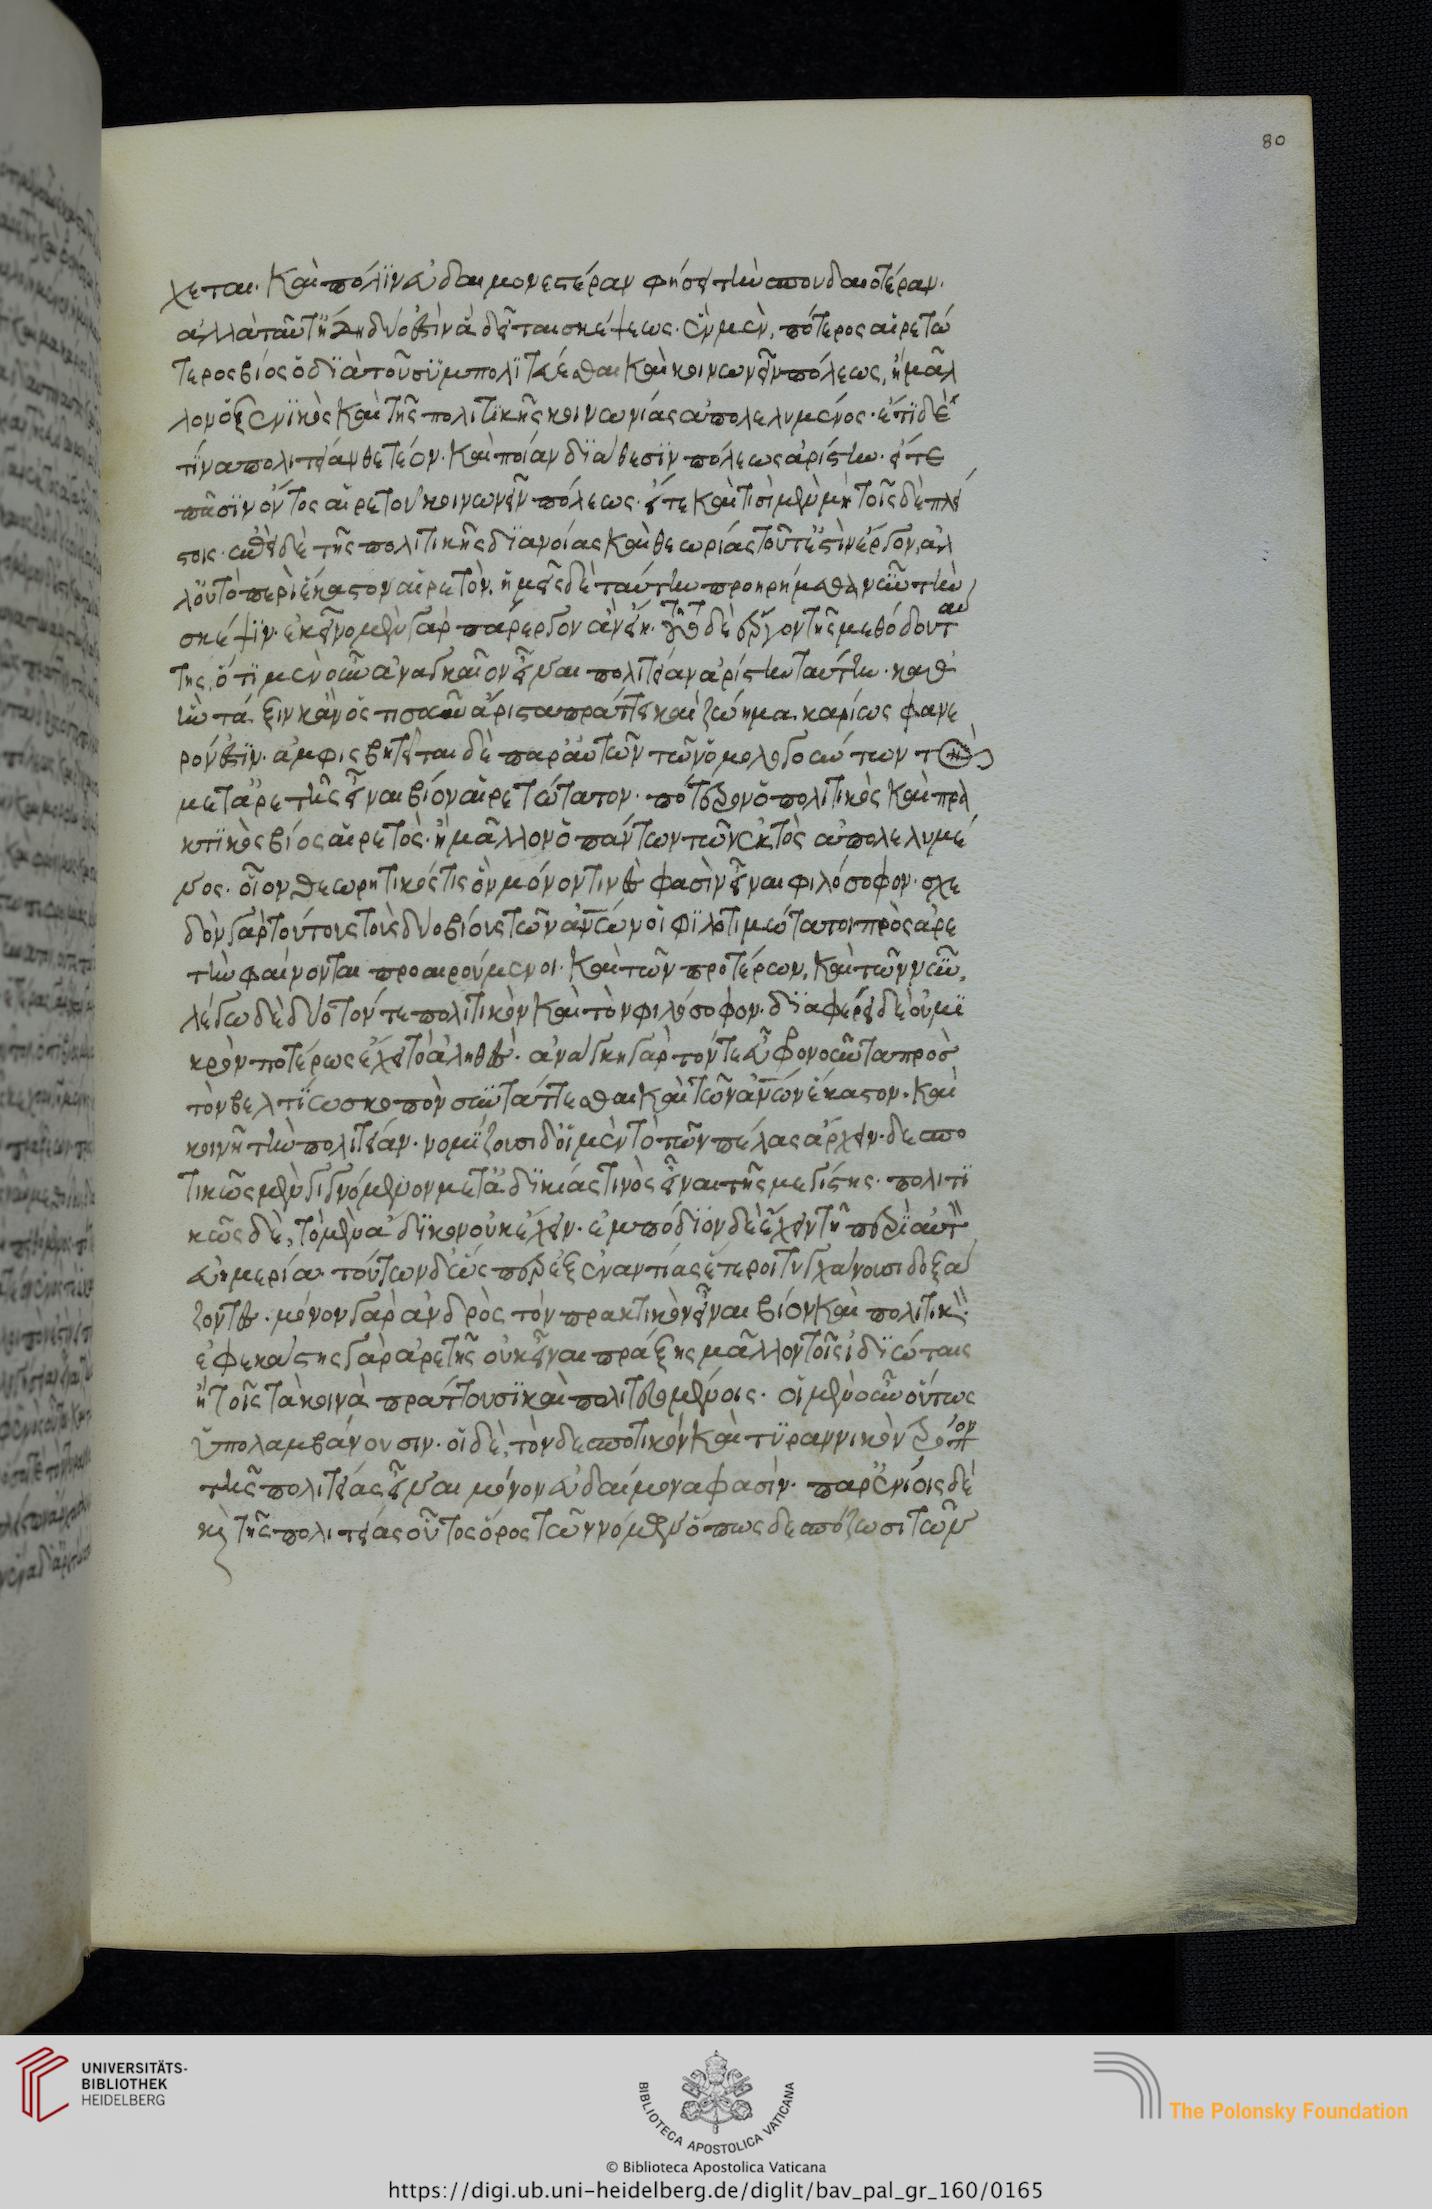 χεται· καὶ πόλϊν εὐδαιμονεστέραν φήσει τὴν σπουδαιοτέραν·
ἀλλὰ ταῦτ' ἤδη δύο ἐστὶν ἃ δεῖται σκέψεως· ἓν μὲν, πότερος αἱρετώ
τερος βίος ὁ διὰ τοῦ συμπολϊτεύεσθαι καὶ κοινωνεῖν πόλεως, ἢ μᾶλ
λον ὁ ξενϊκὸς καὶ τῆς πολιτϊκῆς κοινωνίας ἀπολελυμένος· ἔτϊ δὲ
τίνα πολιτείαν θετέον· καὶ ποίαν διάθεσϊν πόλεως ἀρίστην· εἴτε
πᾶσϊν ὄντος αἱρετοῦ κοινωνεῖν πόλεως· εἴτε καὶ τισὶ μὲν μὴ τοῖς δὲ πλεί
στοις· ἐπεὶ δὲ τῆς πολιτικῆς διανοίας καὶ θεωρίας τοῦτ' ἐστὶν ἔργον, ἀλ
λ' οὐ τὸ περὶ ἕκαστον αἱρετὸν. ἡμεῖς δὲ ταύτην προηρήμεθα νῦν τὴν
σκέψϊν· ἐκεῖνο μὲν γὰρ πάρεργον ἂν εἴη· τοῦτο δὲ ἔργον τῆς μεθόδου ταύ
της, ὅτϊ μὲν οὖν ἀναγκαῖον εἶναι πολιτείαν ἀρίστην ταύτην· καθ'
ἣν τάξιν κἂν ὁστισοῦν ἄριστα πράττει καὶ ζώη μακαρίως φανε
ρόν ἐστϊν· ἀμφισβητεῖται δὲ παρ' αὐτῶν τῶν ὁμολογούντων τὸν
μετ' ἀρετῆς εἶναι βίον αἱρετώτατον· πότερον ὁ πολιτικὸς καὶ πρα
κτϊκὸς βίος αἱρετὸς· ἢ μᾶλλον ὁ πάντων τῶν ἐκτὸς ἀπολελυμέ
νος· οἷον θεωρητικός τις ὃν μόνον τινές φασὶν εἶναι φιλόσοφον· σχε
δὸν γὰρ τούτους τοὺς δύο βίους τῶν ἀνων οἱ φϊλοτιμώτατοι πρὸς ἀρε
τὴν φαίνονται προαιρούμενοι· καὶ τῶν προτέρων, καὶ τῶν νῦν,
λέγω δὲ δύο τόν τε πολιτικὸν καὶ τὸν φιλόσοφον· διαφέρει δὲ οὐ μϊ
κρὸν ποτέρως ἔχει τὸ ἀληθές· ἀνάγκη γὰρ τόν τε εὖ φρονοῦντα πρὸσ
τὸν βελτίω σκοπὸν συντάττεσθαι καὶ τῶν ἀνων ἕκαστον· καὶ
κοινῇ τὴν πολιτείαν· νομίζουσι δ' οἱ μὲν τὸ τῶν πέλας ἄρχειν· δεσπο
τικῶς μὲν γιγνόμενον μετ' ἀδϊκίας τινὸς εἶναι τῆς μεγίστης· πολιτϊ
κῶς δὲ, τὸ μὲν ἄδϊκον οὐκ ἔχειν· ἐμπόδϊον δὲ ἔχειν τῇ περὶ αὐτὸν
εὐημερία· τούτων δ' ὥσπερ ἐξ ἐναντίας ἕτεροι τυγχάνουσι δοξά
ζοντες· μόνον γὰρ ἀνδρὸς τὸν πρακτικὸν εἶναι βίον καὶ πολιτικόν·
ἐφ' ἑκάστης γὰρ ἀρετῆς οὐκ εἶναι πράξεις μᾶλλον τοῖς ἰδϊώταις
ἢ τοῖς τὰ κοινὰ πράττουσϊ καὶ πολιτευομένοις· οἱ μὲν οὖν οὕτως
ὑπολαμβάνουσιν· οἱ δὲ, τὸν δεσποτικὸν καὶ τϋραννικὸν τρόπον
τῆς πολιτείας εἶναι μόνον εὐδαίμονα φασίν· παρ' ἐνίοις δὲ
καὶ τῆς πολιτείας οὗτος ὅρος τῶν νόμων ὅπως δεσπόζωσι τῶν
80
UNIVERSITÄTS-
BIBLIOTHEK
HEIDELBERG
BIBLIOTECA APOSTOLICA VATICANA
© Biblioteca Apostolica Vaticana
The Polonsky Foundation
https://digi.ub.uni-heidelberg.de/diglit/bav_pal_gr_160/0165